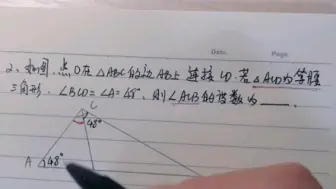 Date.
Page.
2、如图,点D在△ABC的边AB上,连接CD.若△ACD为等腰
三角形,∠BCD=∠A=48°,则∠ACB的度数为____.
C
48°
A
48°